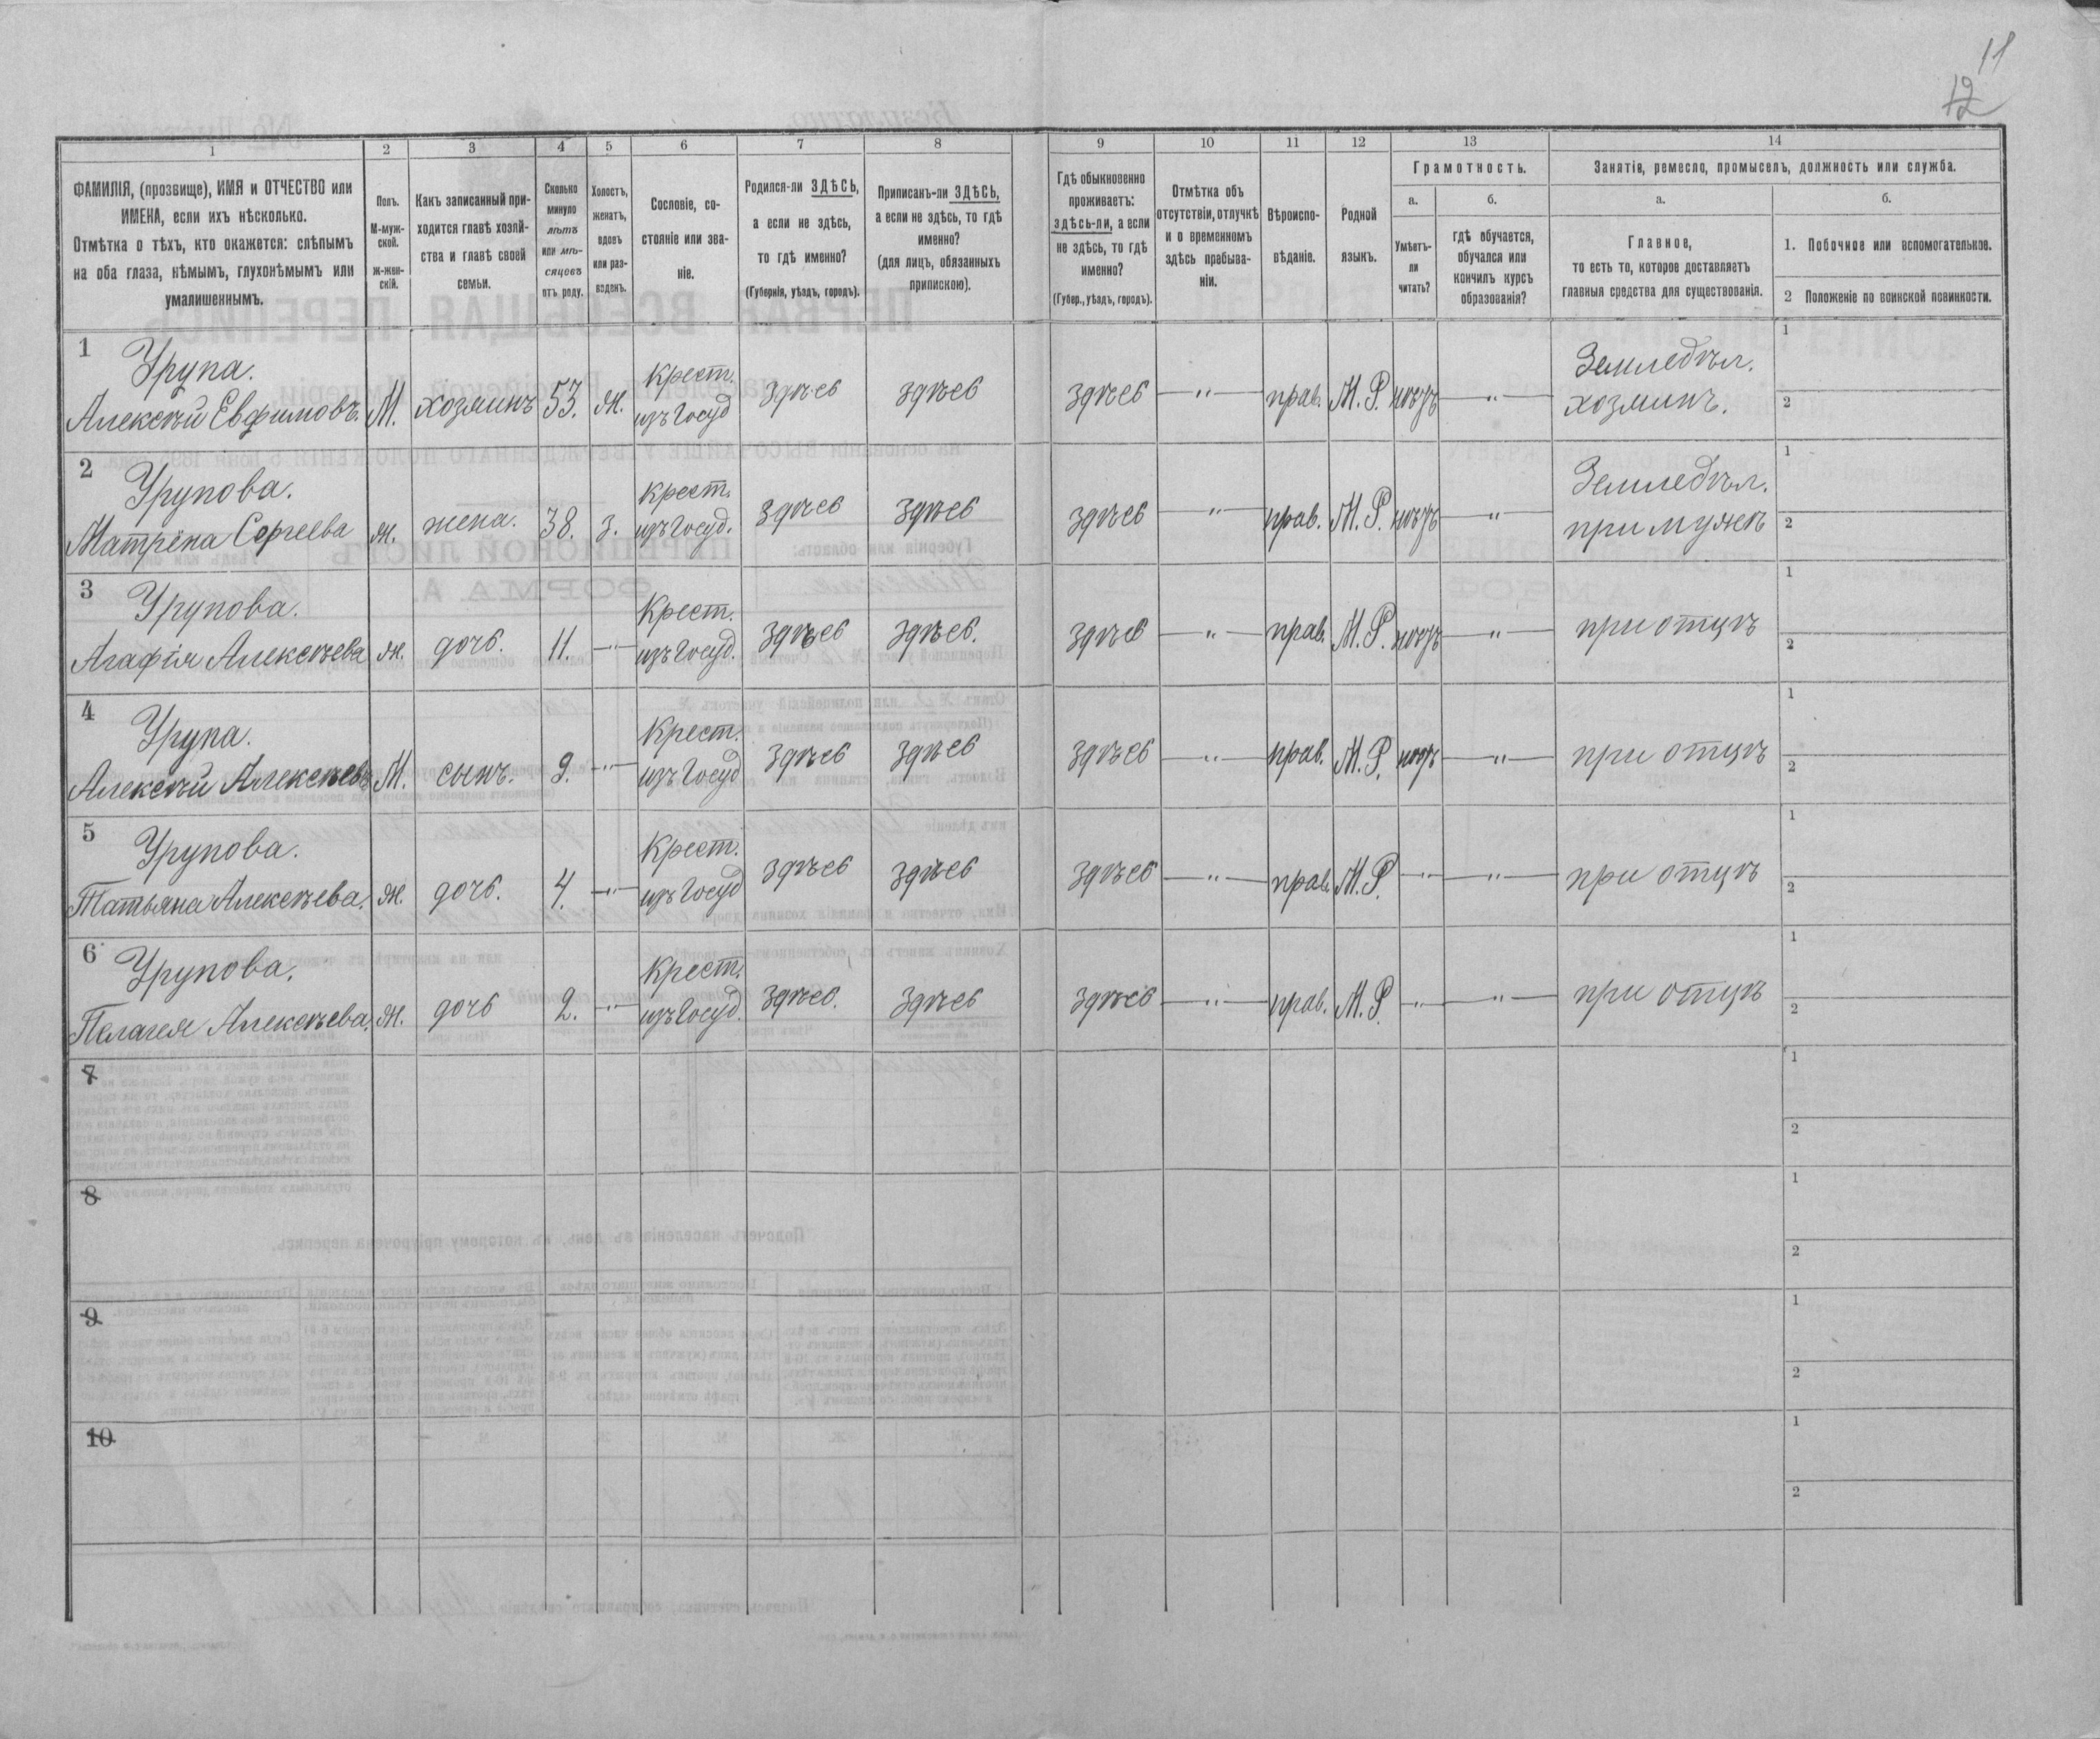 11
12
1 2 3 4 5 6 7 8 9 10 11 12 13 14
ФАМИЛІЯ, (прозвище), ИМЯ и ОТЧЕСТВО или
ИМЕНА, если ихъ нѣсколько.
Отмѣтка о тѣхъ, кто окажется: слѣпымъ
на оба глаза, нѣмымъ, глухонѣмымъ или
умалишеннымъ.
Полъ.
М-муж-
ской.
Ж-жен-
скій.
Какъ записанный при-
ходится главѣ хозяй-
ства и главѣ своей
семьи.
Сколько
минуло
лѣтъ
или мѣ-
сяцевъ
отъ роду.
Холостъ,
женатъ,
вдовъ
или раз-
веденъ.
Сословіе, со-
стояніе или зва-
ніе.
Родился-ли ЗДѢСЬ,
а если не здѣсь,
то гдѣ именно?
(Губернія, уѣздъ, городъ).
Приписанъ-ли ЗДѢСЬ,
а если не здѣсь, то гдѣ
именно?
(для лицъ, обязанныхъ
припискою).
Гдѣ обыкновенно
проживаетъ:
здѣсь-ли, а если
не здѣсь, то гдѣ
именно?
(Губер., уѣздъ, городъ).
Отмѣтка объ
отсутствіи, отлучкѣ
и о временномъ
здѣсь пребыва-
ніи.
Вѣроиспо-
вѣданіе.
Родной
языкъ.
Грамотность.
а.
Умѣетъ-
ли
читать?
б.
гдѣ обучается,
обучался или
кончилъ курсъ
образованія?
Занятія, ремесло, промыселъ, должность или служба.
а.
Главное,
то есть то, которое доставляетъ
главныя средства для существованія.
б.
1. Побочное или вспомогательное.
2 Положеніе по воинской повинности.
1 Урупа. Крест. Земледѣл. 1
Алексѣй Евфимовъ. М. хозяинъ 53. ж. изъ Госуд здѣсь здѣсь здѣсь — " — прав. М.Р. нѣтъ — " — хозяинъ. 2
2 Урупова. Крест. Земледѣл. 1
Матрёна Сергѣева ж. жена. 38. з. изъ Госуд. здѣсь здѣсь здѣсь — " — прав. М.Р. нѣтъ — " — при мужѣ 2
3 Урупова. Крест. 1
Агафія Алексѣева ж. дочь. 11. — изъ Госуд. здѣсь здѣсь. здѣсь — " — прав. М.Р. нѣтъ — " — при отцѣ 2
4 Урупа. Крест. 1
Алексѣй Алексѣевъ М. сынъ. 9. — " — изъ Госуд здѣсь здѣсь здѣсь — " — прав. М.Р. нѣтъ — " — при отцѣ 2
5 Урупова. Крест. 1
Татьяна Алексѣева. ж. дочь. 4. — " — изъ Госуд здѣсь здѣсь здѣсь — " — прав. М.Р. — " — — " — при отцѣ 2
6 Урупова. Крест. 1
Пелагея Алексѣева. ж. дочь 2. — " — изъ Госуд. здѣсь. здѣсь здѣсь — " — прав. М.Р. — " — — " — при отцѣ 2
7 1
2
8 1
2
9 1
2
10 1
2